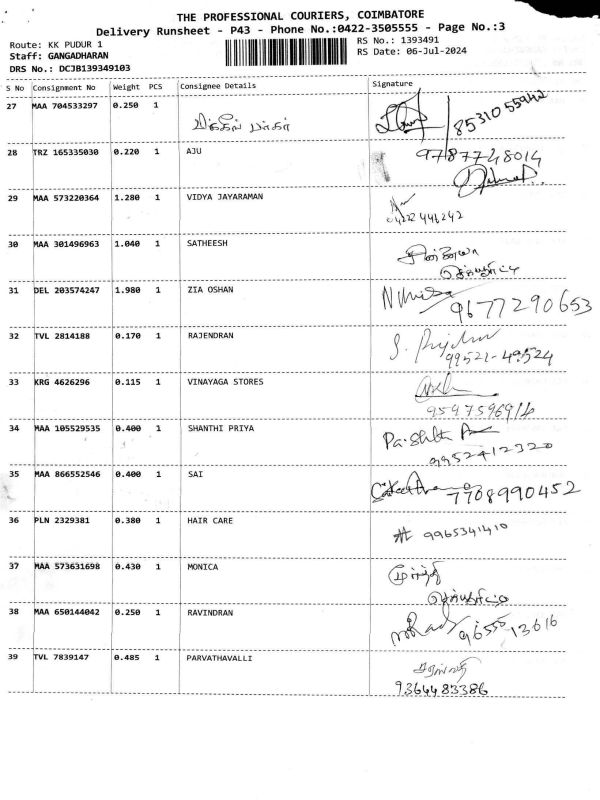 THE PROFESSIONAL COURIERS, COIMBATORE
Delivery Runsheet - P43 - Phone No.:0422-3505555 - Page No.:3
Route: KK PUDUR 1
RS No.: 1393491
Staff: GANGADHARAN
RS Date: 06-Jul-2024
DRS No.: DCJB139349103
S No Consignment No Weight PCS Consignee Details Signature
27 MAA 704533297 0.250 1
8531055942
28 TRZ 165335030 0.220 1 AJU 9787748014
29 MAA 573220364 1.280 1 VIDYA JAYARAMAN
30 MAA 301496963 1.040 1 SATHEESH
31 DEL 203574247 1.980 1 ZIA OSHAN
9677290653
32 TVL 2814188 0.170 1 RAJENDRAN
99521-49524
33 KRG 4626296 0.115 1 VINAYAGA STORES
34 MAA 105529535 0.400 1 SHANTHI PRIYA
9952412320
35 MAA 866552546 0.400 1 SAI
7708990452
36 PLN 2329381 0.380 1 HAIR CARE
9965341410
37 MAA 573631698 0.430 1 MONICA
38 MAA 650144042 0.250 1 RAVINDRAN
96555 13616
39 TVL 7839147 0.485 1 PARVATHAVALLI
9364483386